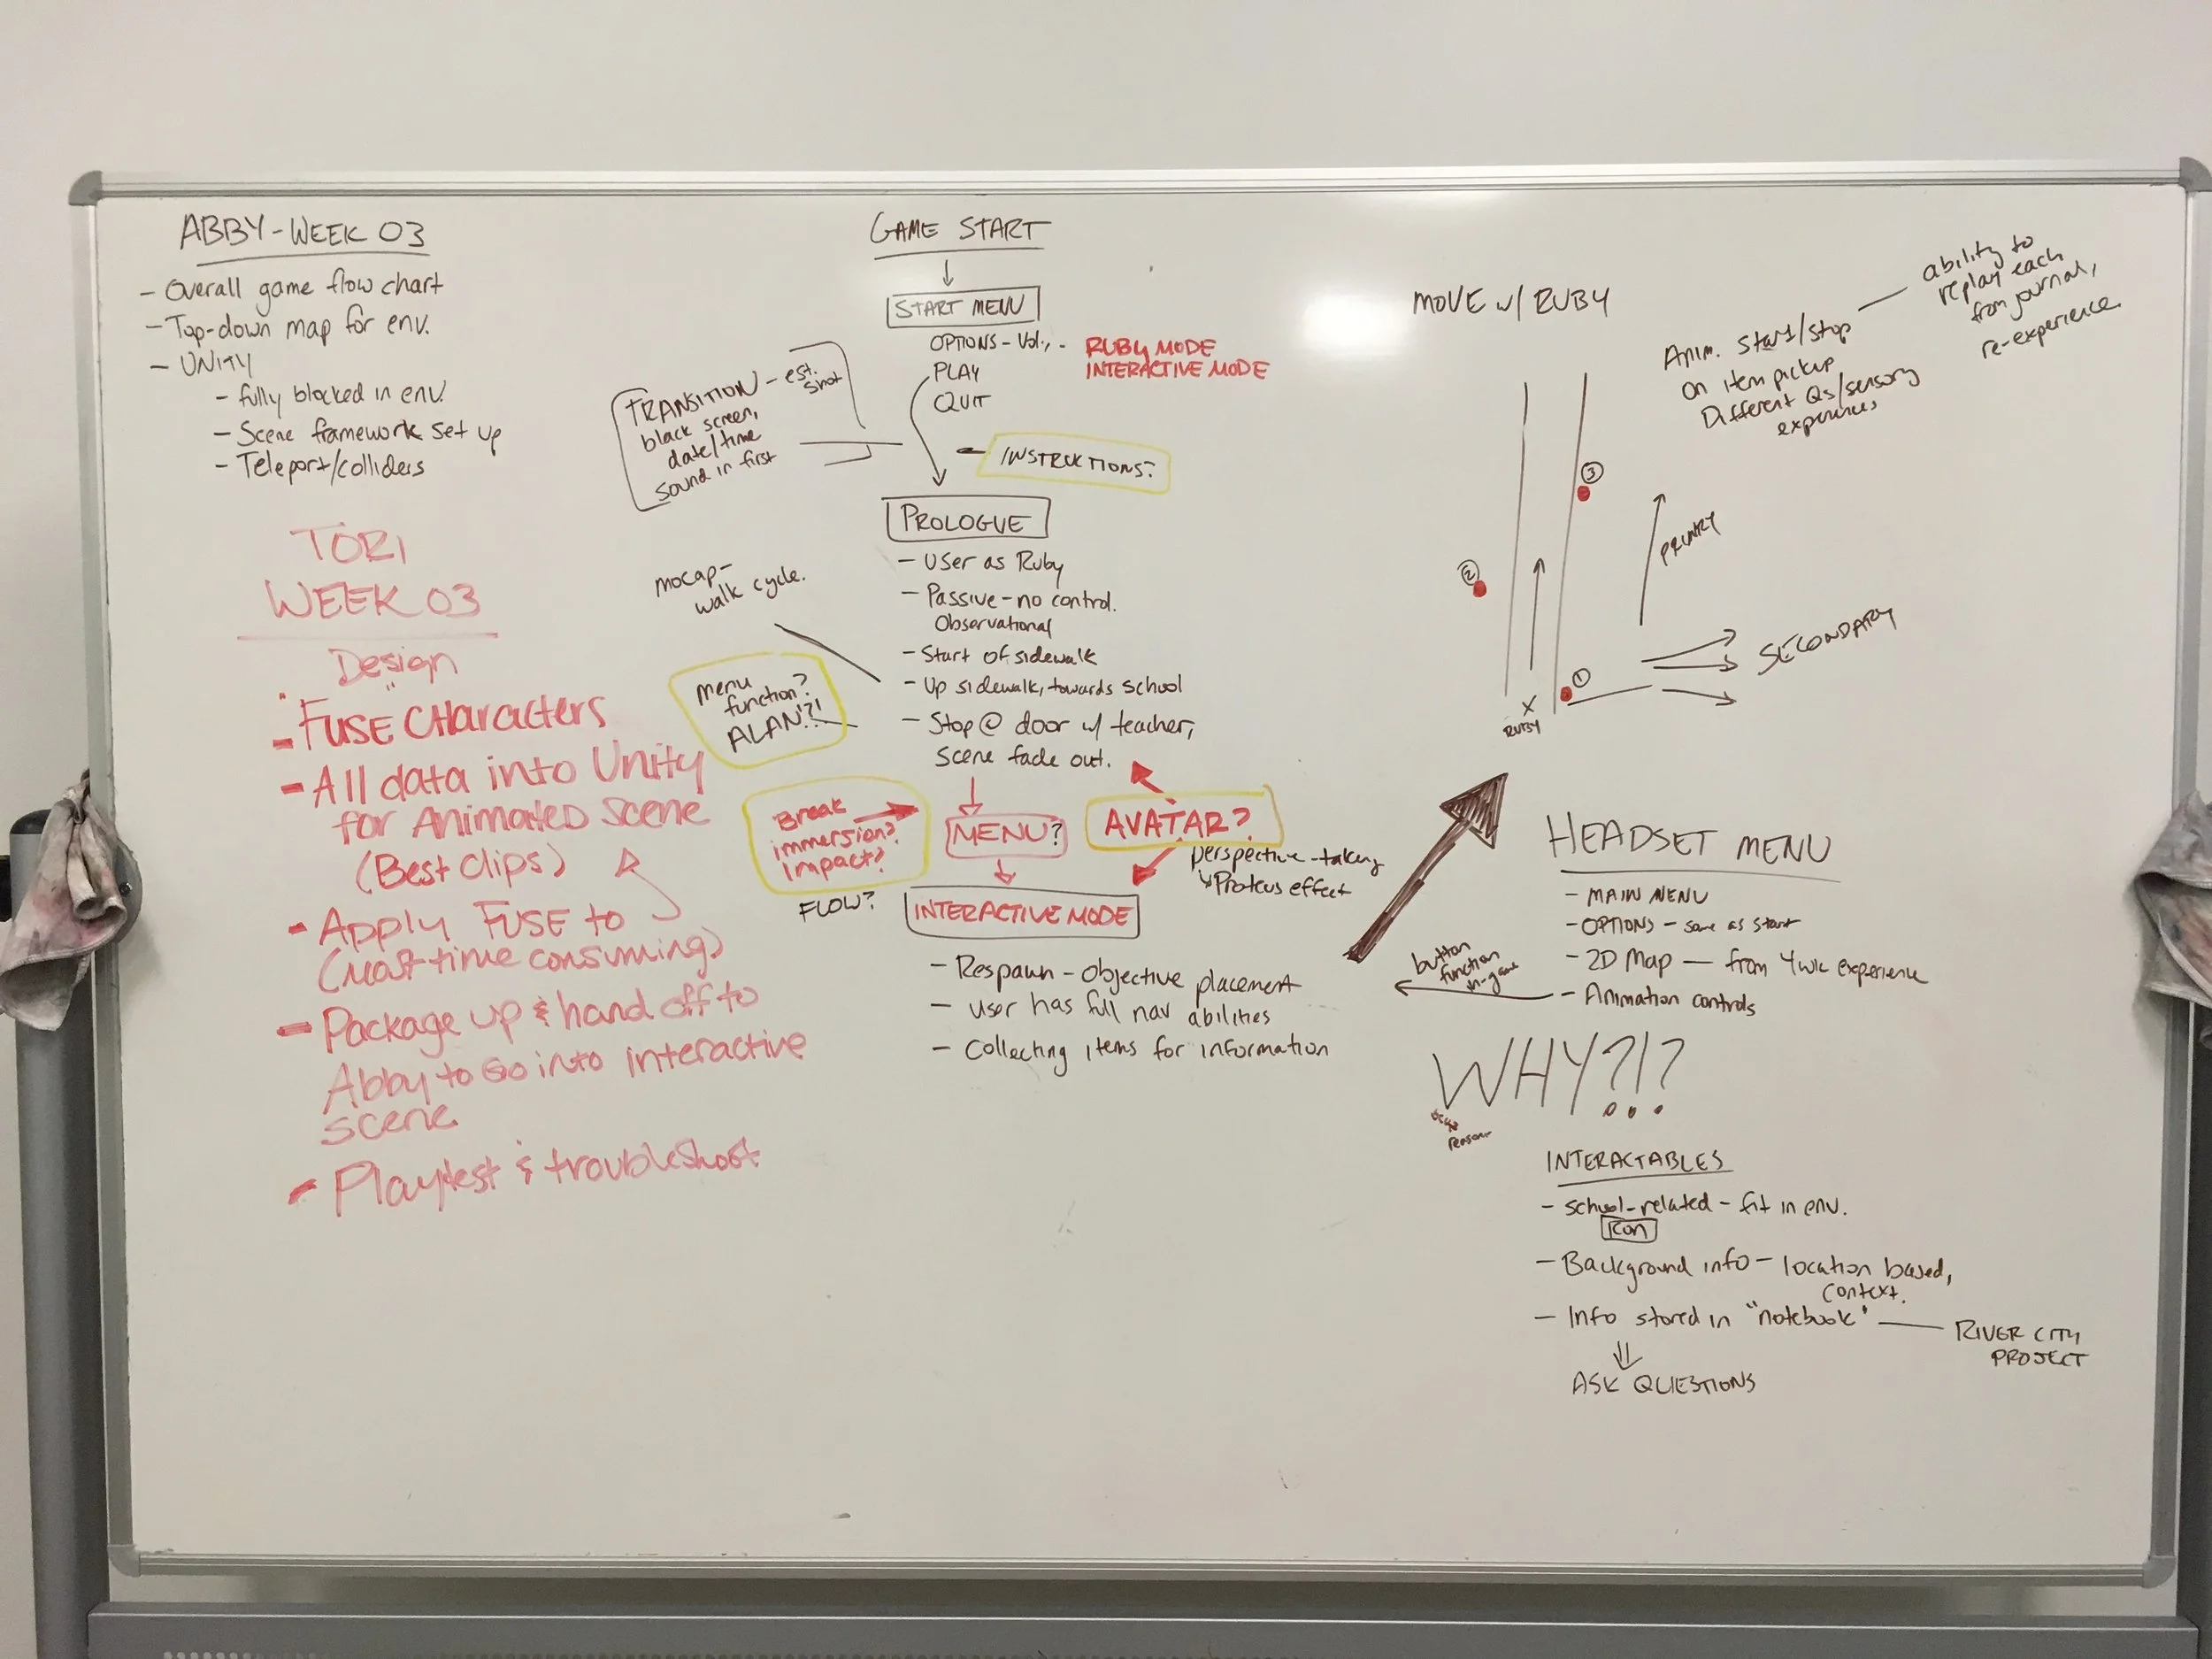 ABBY-WEEK 03
- Overall game flow chart
- Top-down map for env.
- UNITY
- fully blocked in env.
- Scene framework set up
- Teleport/colliders
TORI
WEEK 03
Design
- FUSE CHaracters
- All data into Unity
for Animated scene
(Best clips)
- Apply FUSE to
(most time consuming)
- Package up & hand off to
Abby to go into interactive
scene
- Playtest & troubleshoot
GAME START
START MENU
OPTIONS - Vol.,
PLAY
QUIT
RUBY MODE
INTERACTIVE MODE
TRANSITION - est.
shot
black screen,
date/time
sound in first
- INSTRUCTIONS?
PROLOGUE
- User as Ruby
- Passive - no control.
Observational
- Start of sidewalk
- Up sidewalk, towards school
- Stop @ door w/ teacher,
scene fade out.
mocap-
walk cycle.
menu
function?
ALAN?!
Break
immersion?
impact?
FLOW?
MENU?
AVATAR?
perspective-taking
Proteus effect
INTERACTIVE MODE
- Respawn - objective placement
- user has full nav abilities
- Collecting items for information
MOVE w/ RUBY
Anim. Start/stop
on item pickup
Different Qs/sensory
experiences
ability to
replay each
from journal,
re-experience
3
2
1
X
RUBY
PRIMARY
SECONDARY
HEADSET MENU
- MAIN MENU
- OPTIONS - same as start
- 2D Map - from 4wk experience
- Animation controls
button
function
in-game
WHY?!?
reason
INTERACTABLES
- school-related - fit in env.
Icon
- Background info - location based,
context.
- Info stored in "notebook"
RIVER CITY
PROJECT
ASK QUESTIONS